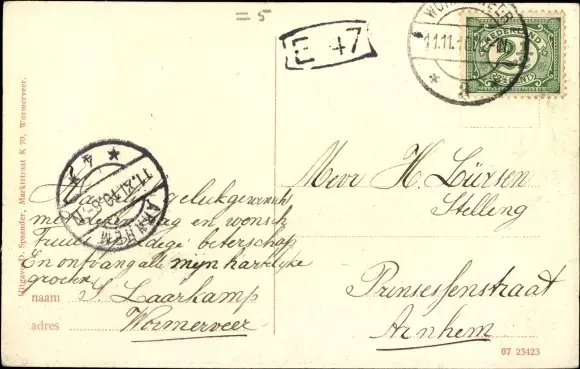 = 5
E 47
WORMERVEER
11.11.10
NEDERLAND
2½
CENTS
Uitgave D. Spaander, Marktstraat K 70, Wormerveer.
ARNHEM
gelukgewenscht
dag en wensch
Truus beterschap
En ontvang alle mijn hartelijke
groeten
naam S. Laarkamp
adres Wormerveer
Mevr H. Lürsen
Stelling
Prinsessenstraat
Arnhem
07 23423